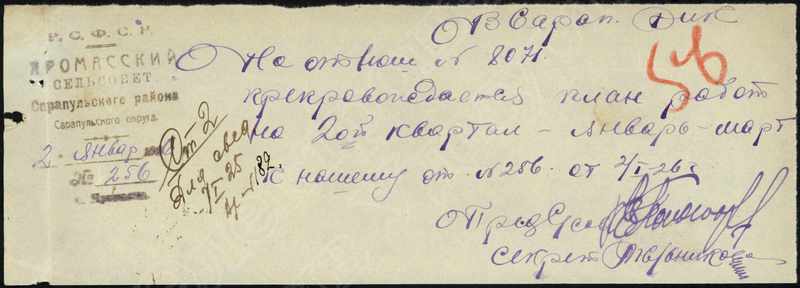 Р. С. Ф. С. Р.
ЯРОМАССКИЙ
СЕЛЬСОВЕТ
Сарапульского района
Сарапульского округа.
2 январ
№ 256
В Сарап. Рик
На отнош № 8071.
препровождается план работ
на 2ой квартал - январь-март
к нашему от. № 256. от 2/I-26г
От 2
Для свед
Пред С/сов
Секрет
56